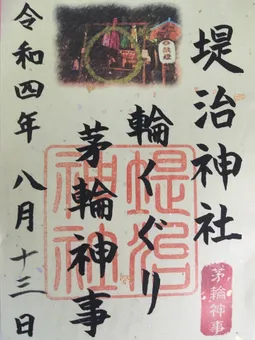 堤治神社
輪くぐり
茅輪神事
令和四年 八月 十三日
堤治
神社
茅輪神事